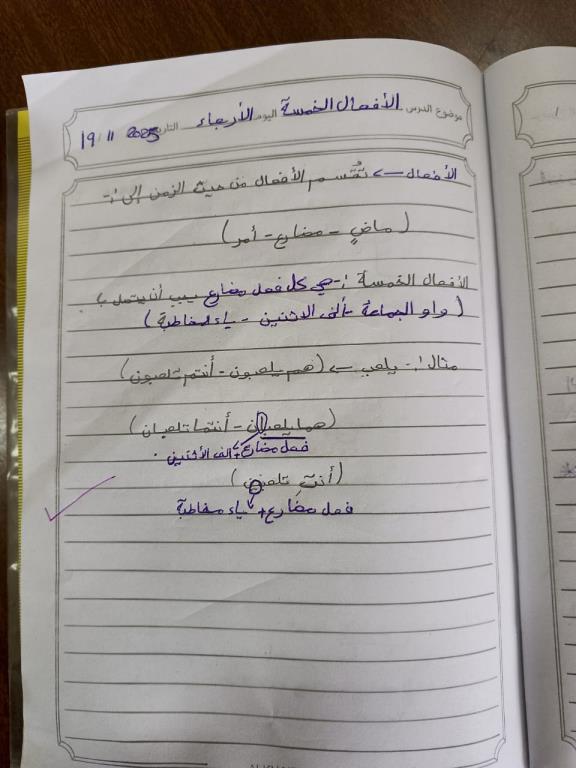 موضوع الدرس الأفعال الخمسة اليوم الأربعاء التاريخ 19 / 11 2025
الأفعال ← تُقسم الأفعال من حيث الزمن إلى :-
(ماضٍ - مضارع - أمر)
الأفعال الخمسة :- هي كل فعل مضارع يجب أن يتصل بـ
(واو الجماعة - ألف الاثنين - ياء المخاطبة)
مثال :- يلعب ← (هم يلعبون - أنتم تلعبون)
(هما يلعبان - أنتما تلعبان)
فعل مضارع + ألف الأثنين .
(أنتِ تلعبين)
فعل مضارع + ياء مخاطبة